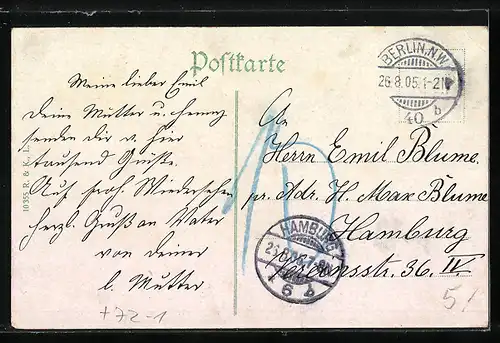 Postkarte
BERLIN. N.W.
26.8.05. 1-2 N
40 b
Meine lieber Emil
deine Mutter u.
senden dir v. hier
tausend Grüße.
Auf froh. Wiedersehen
herzl. Gruß an Vater
von deiner
l. Mutter
10355 R. & K.
An
Herrn Emil Blume.
pr. Adr. H. Max Blume
Hamburg
36. IV
HAMBURG
6
10
5!
+72-1